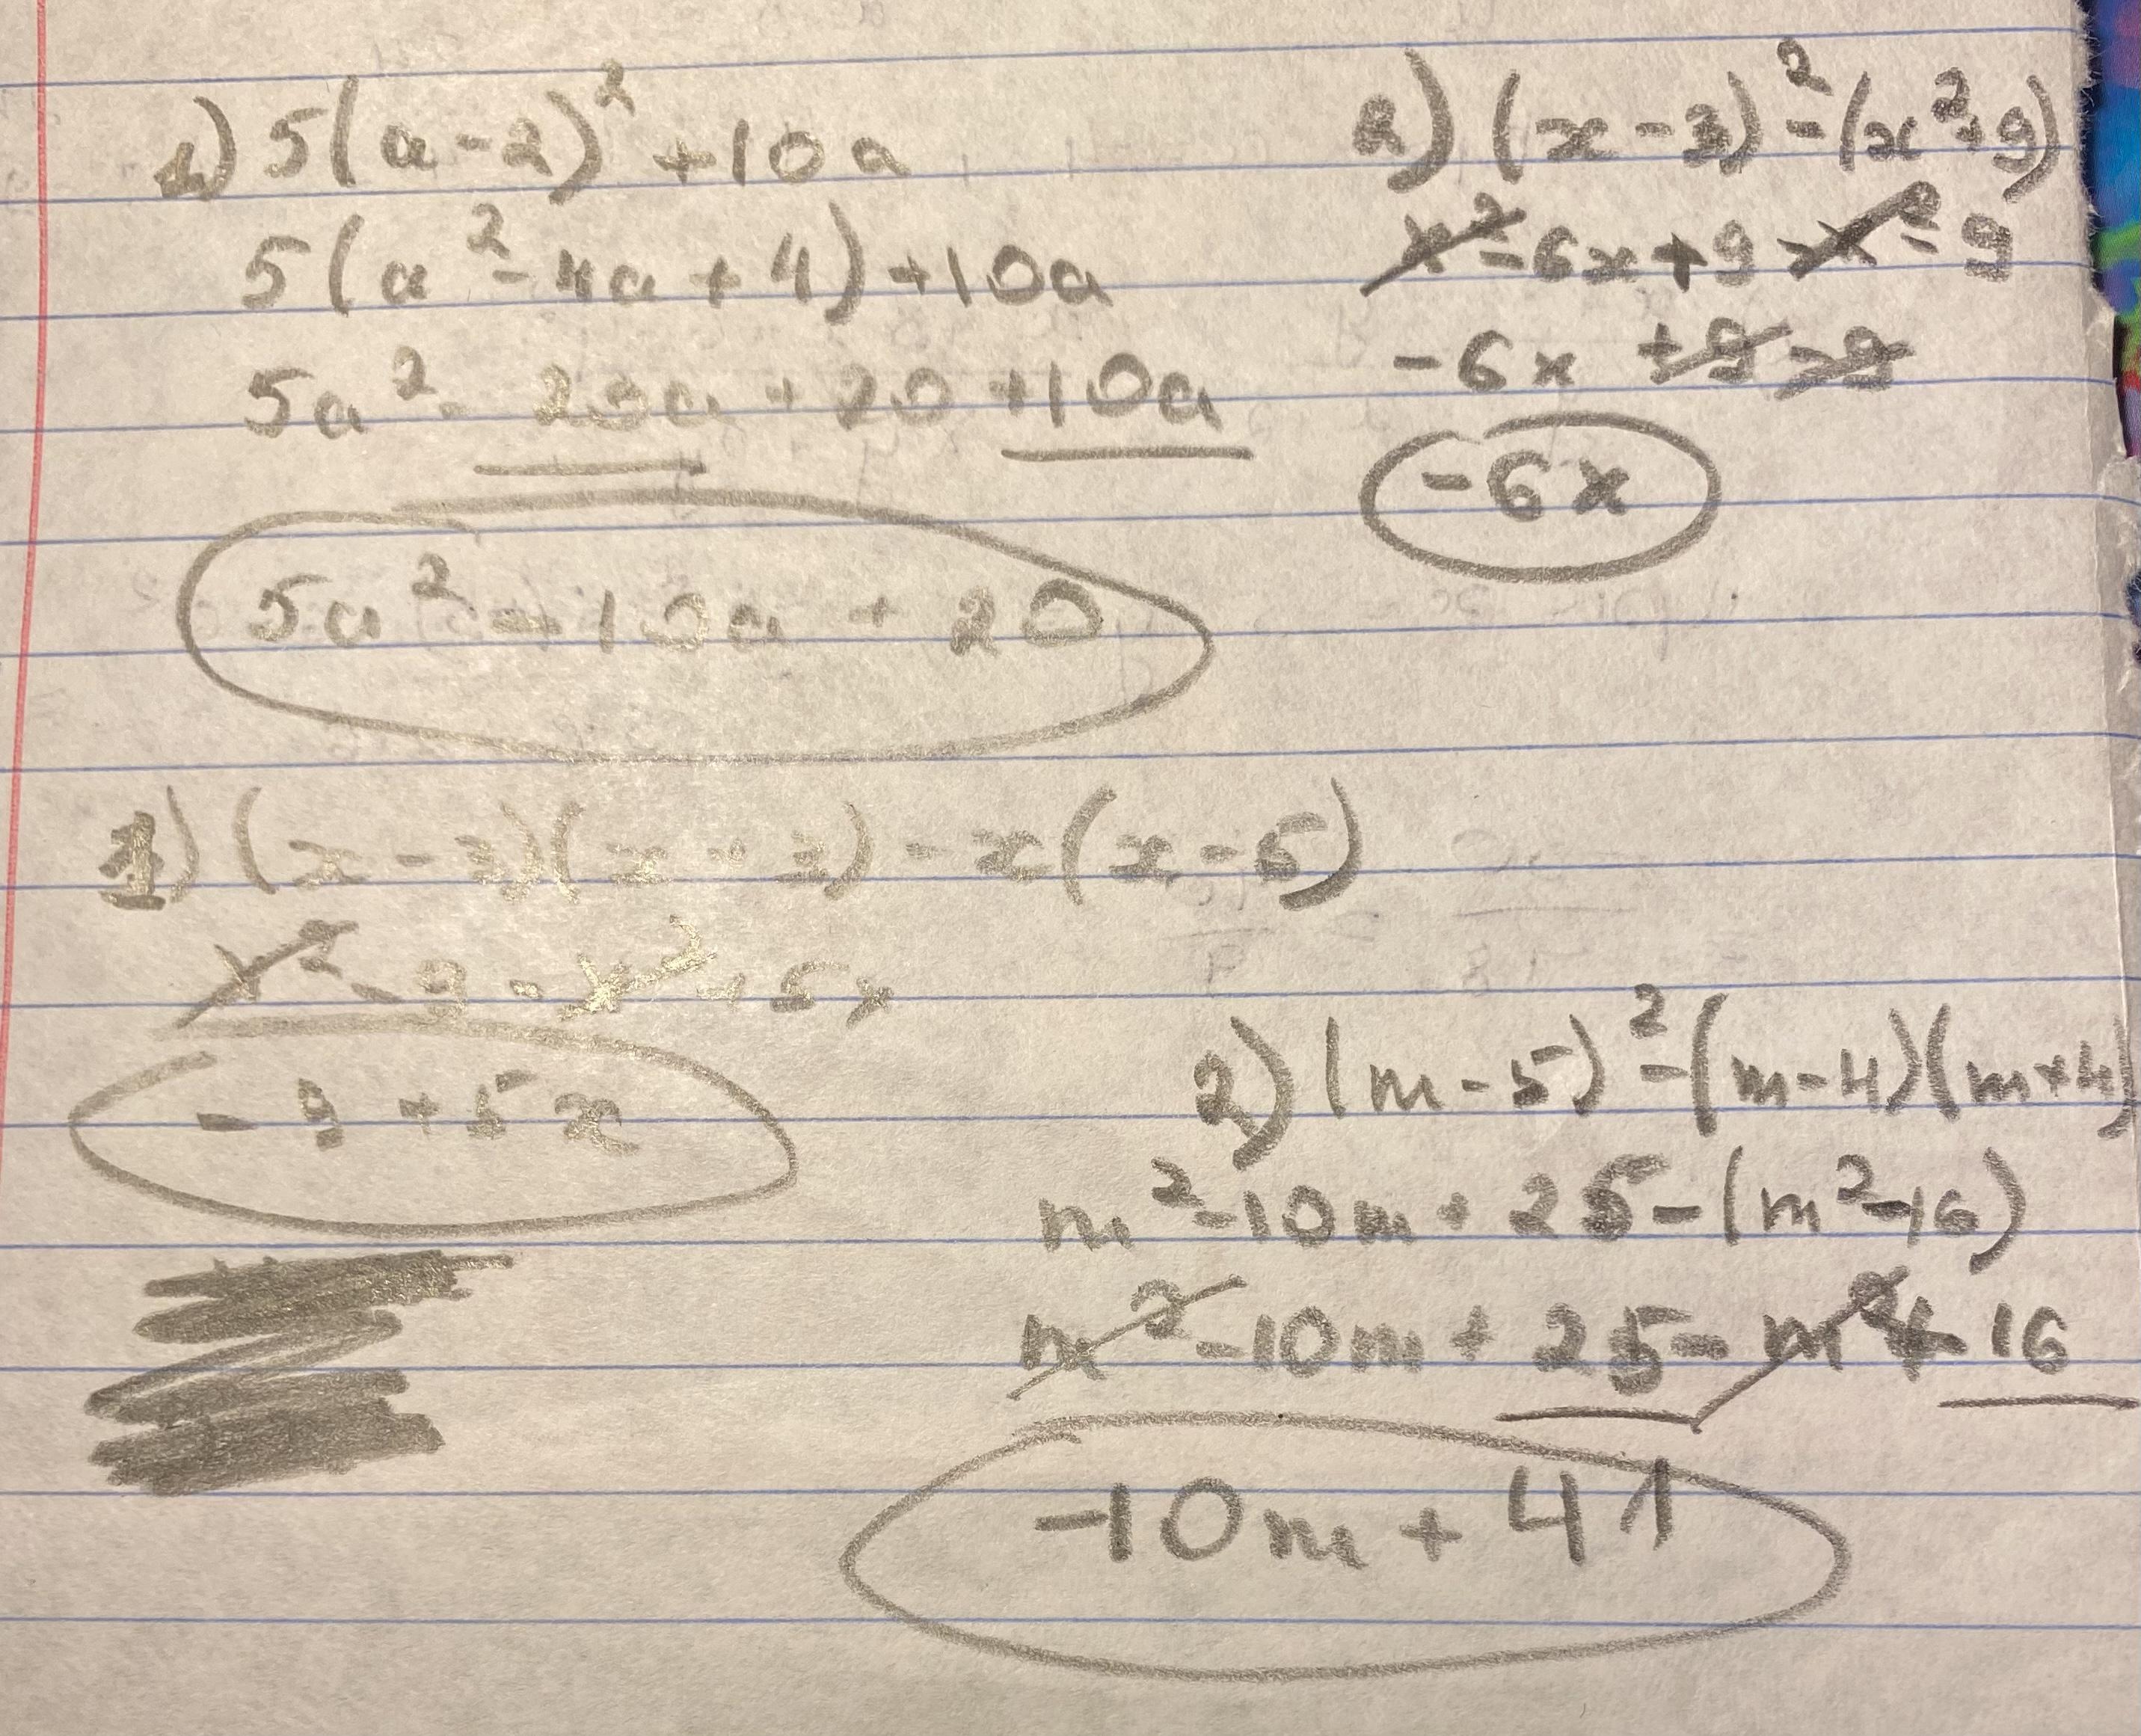 1) 5(a-2)² +10a
5(a²-4a+4)+10a
5a²-20a+20+10a
5a²-10a+20
2) (x-3)²-(x²+9)
x²-6x+9-x²-9
-6x+9-9
-6x
1) (x-3)(x+3)-x(x-5)
x²-9-x²+5x
-9+5x
2) (m-5)²-(m-4)(m+4)
m²-10m+25-(m²-16)
m²-10m+25-m²+16
-10m+41